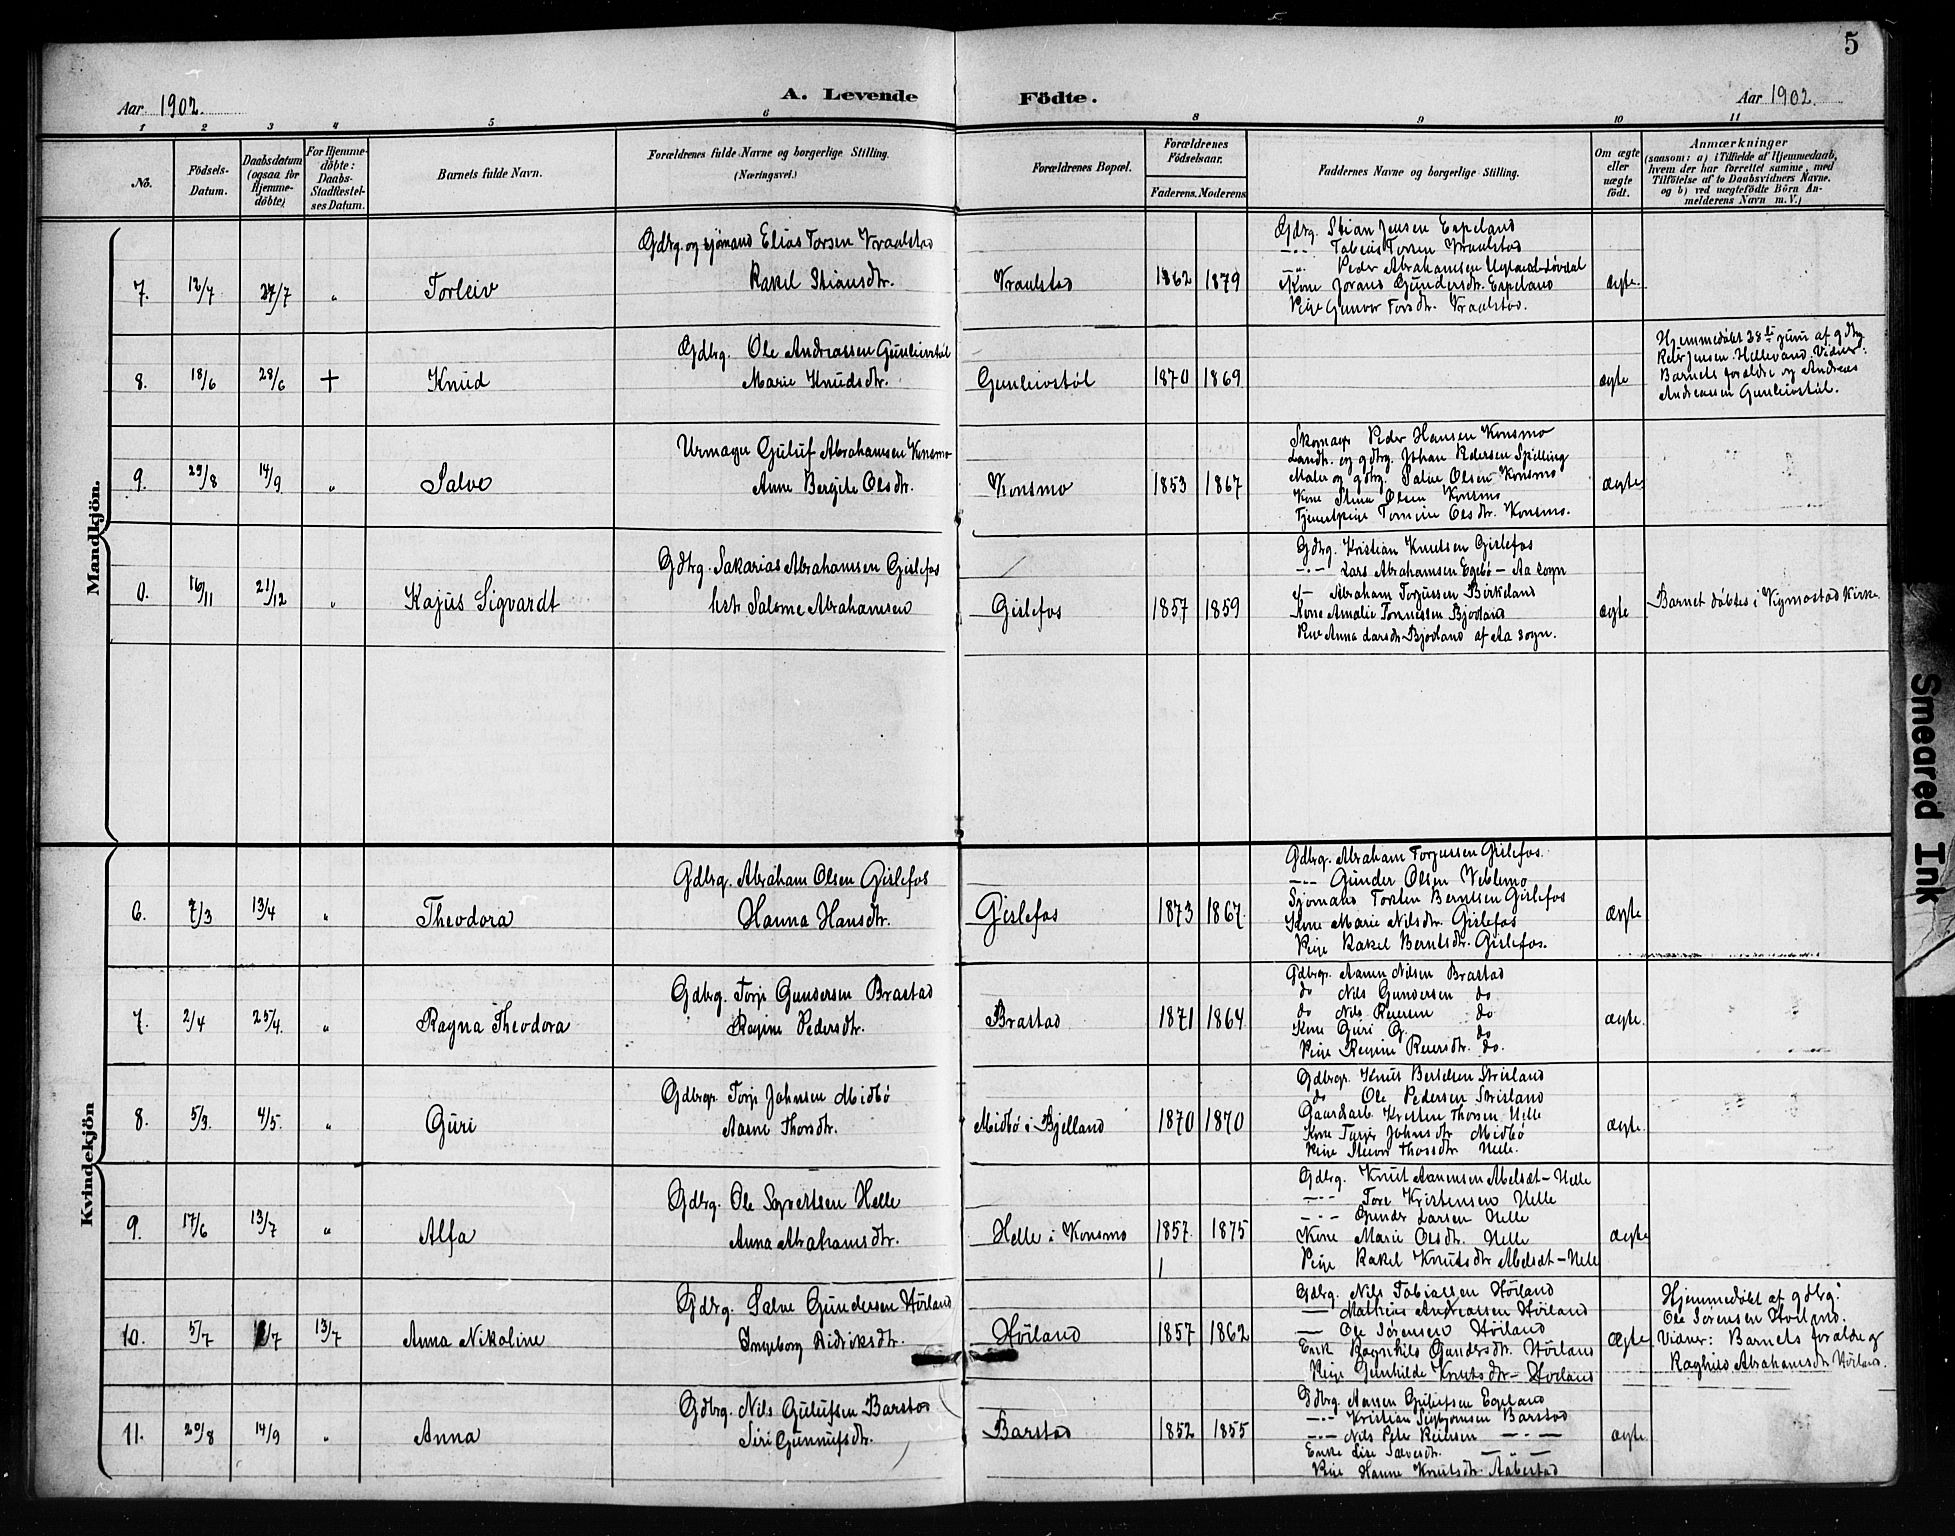 5
Aar 1902.
A. Levende
Födte.
Aar 1902.
1 2 3 4 5 6 8 9 10 11
No.
Födsels-
Datum.
Daabsdatum
(ogsaa for
Hjemme-
döbte)
For Hjemme-
döbte:
Daabs-
Stadfæstel-
ses Datum.
Barnets fulde Navn.
Forældrenes fulde Navne og borgerlige Stilling.
(Næringsvei.)
Forældrenes Bopæl.
Forældrenes
Födselsaar.
Faderens. Moderens
Faddernes Navne og borgerlige Stilling.
Om ægte
eller
uægte
födt.
Anmærkninger
(saasom: a) i Tilfælde af Hjemmedaab,
hvem der har forrettet samme, med
Tilföielse af to Daabsvidners Navne.
og b) ved uægtefödte Börn An-
melderens Navn m. V.)
Mandkjön.
7. 12/7 27/7 " Torleiv
Gdbrg. og sjømand Elias Torsen Vraalstad
Rakel Stiansdtr.
Vraalstad 1862 1879
Gdbrg. Stian Jensen Espeland
-"- Tobias Torsen Vraalstad
-"- Peder Abrahamsen
Kone Jorand Gundersdtr. Espeland
Pige Gunvor Torsdtr. Vraalstad.
ægte.
8. 18/6 28/6 + Knud
Gdbrg. Ole Andreassen Gunleivstøl
Marie Knudsdtr.
Gunleivstøl 1870 1869
ægte
Hjemmedøbt 28de juni af gdbrg
Peder Jensen Helleland. Vidner:
Barnets forældre og Andreas
Andreassen Gunleivstøl.
9. 29/8 14/9 " Salve
Urmager Guluf Abrahamsen Konsmo
Anne Bergite Olsdtr.
Konsmo 1853 1867
Skomager Peder Hansen Konsmo
Landh. og gdbrg. Johan Pedersen Spilling
Maler og gdbrg. Salve Olsen Konsmo
Kone Stina Olsen Konsmo
Tjenestpige Tomine Olsdtr. Konsmo.
ægte
0. 16/11 21/12 " Kajus Sigvardt
Gdbrg. Sakarias Abrahamsen Gislefos
hstr Salome Abrahamsen
Gislefos 1857 1859
Gdbrg. Kristian Knutsen Gislefos
-"- Lars Abrahamsen Egebø - Aa sogn
-"- Abraham Torjussen Birkeland
Kone Amalie Tønnessen Bjødland
Pige Anna Larsdtr Bjødland af Aa sogn.
ægte
Barnet døbtes i Vigmostad Kirke.
Kvindekjön
6. 7/3 13/4 " Theodora
Gdbrg. Abraham Olsen Gislefos
Hanna Hansdtr.
Gislefos 1873 1867.
Gdbrg. Abraham Torjussen Gislefos.
-"- Gunder Olsen Veblemo
Sjømand Torsten Berntsen Gislefos
Kone Marie Nilsdtr. Gislefos
Pige Rakel Berntsdtr. Gislefos.
ægte
7. 2/4 25/4. " Ragna Theodora
Gdbrg. Torje Gundersen Brastad
Regine Pedersdtr.
Brastad 1871 1864
Gdbrgr. Aanen Nilsen Brastad
do Nils Gundersen do
do Nils Reiersen do
Kone Guri G. do
Pige Regine Reiersdtr. do.
ægte.
8. 5/3. 4/5. " Guri
Gdbrgr. Torje Johnsen Midbø
Aasne Thorsdtr.
Midbø i Bjelland 1870 1870
Gdbrgr. Knut Bertelsen Strisland
do Ole Pedersen Strisland
Gaardarb. Kristen Thorsen Helle
Kone Turjer Johnsdtr Midbø
Pige Steinvor Thorsdtr Helle.
ægte.
9. 17/6 13/7 " Alfa
Gdbrg. Ole Syvertsen Helle
Anna Abrahamsdtr.
Helle i Konsmo 1857. 1875
Gdbrg. Knut Aanensen Melsdt-Helle
-"- Tore Kristensen Helle
-"- Gunder Larsen Helle
Kone Marie Olsdtr. Helle
Pige Rakel Knutsdtr Melsdt-Helle
ægte
10. 5/7 /7 13/7 Anna Nikoline
Gdbrg. Salve Gundersen Høiland
Ingeborg Didriksdtr.
Høiland 1857 1862
Gdbrg. Nils Tobiassen Høiland
— Mathias Andreassen Høiland
— Ole Sørensen Høiland
Enk Ragnhild Gundersdtr. Høiland
Pige Gunhilde Knutsdtr- Høiland
ægte
Hjemmedøbt af gdbrg:
Ole Sørensen Høiland.
Vidner: Barnets forældre og
Raghild Abrahamsdtr Høiland.
11. 20/8 14/9 " Anna
Gdbrg. Nils Gulufsen Barstad
Siri Gunnufsdtr.
Barstad 1852 1855
Gdbrg. Aanen Gulufsen Egeland
-"- Kristian Sigbjørnsen Barstad
-"- Nils Peter Reiersen -"-
Enke Lise Salvesdtr. -"-
Pige Hanne Knutsdtr. Aabestad
ægte
Smeared Ink